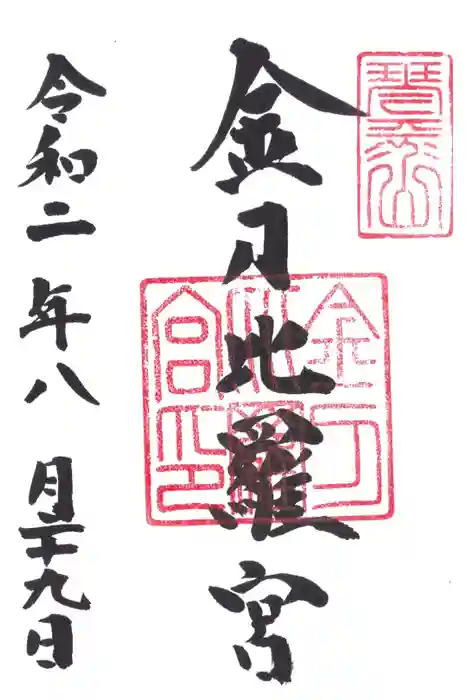 琴平山
金刀比羅宮
金刀比羅宮印
令和二年八月二十九日